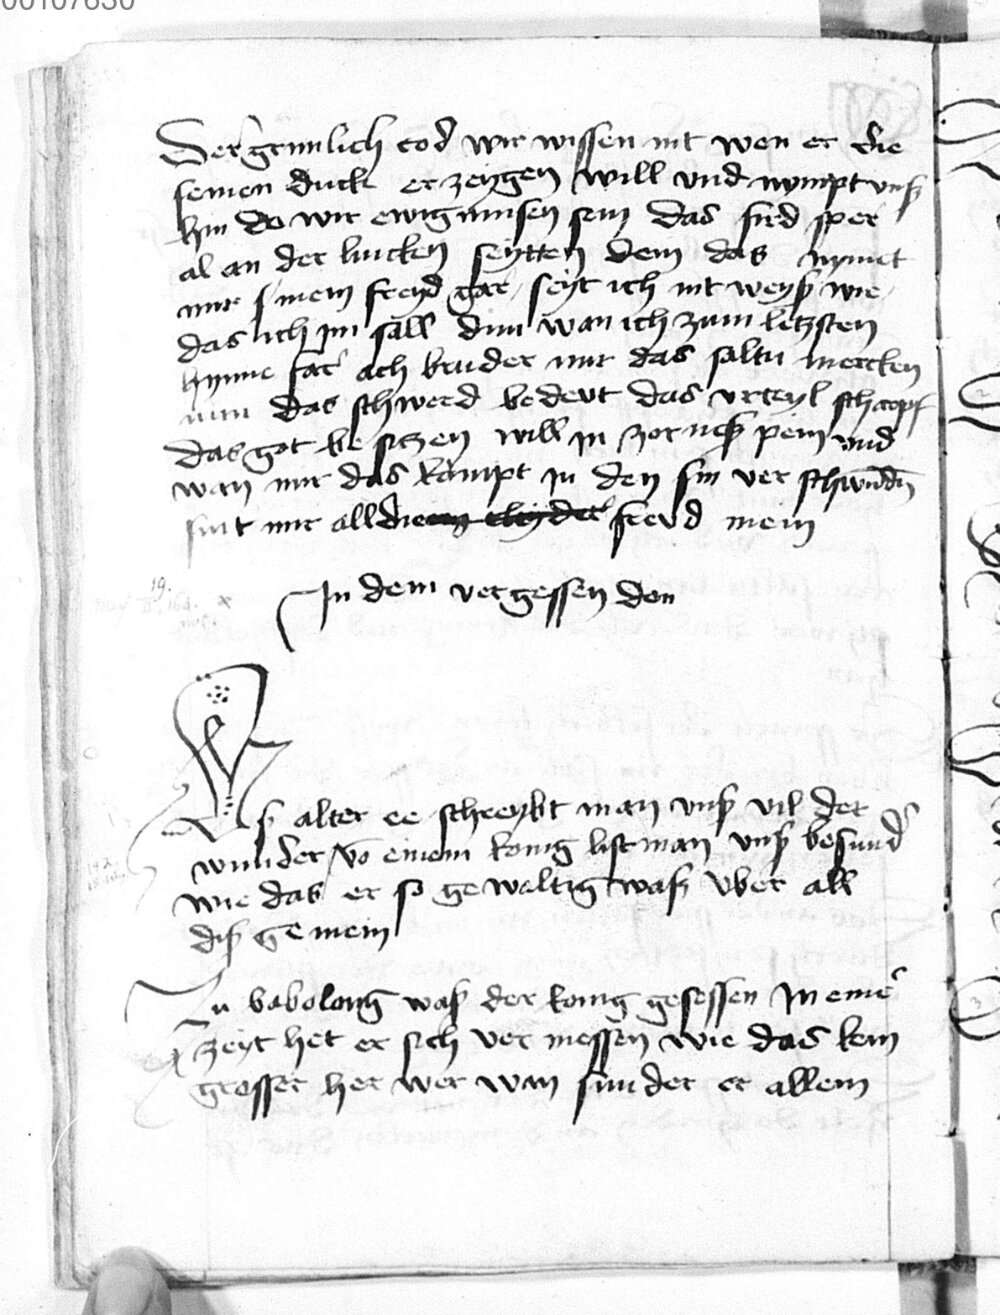 00107630
Der grimlich tod wir wissen nit wen er die
seinen duck erzeygen will vnd nympt vnß
hin do wir ewig müssen sein das fird sper
al an der lincken seytten dem das nymet
mir mein freyd gar seyt ich nit weyß wie
das ich im sall dun wan ich zum letzsten
hynne far ach bruder mir das saltu mercken
nun das schwerd bedeut das vrteyl scharpf
das got besitzen will in zorneß pein vnd
wan mir das kompt in den sin verschwundn
sint mir all die freyd mein
In dem vergessen don
Uß alter ee schreybt man vnß vil der
wunder vo einem konig list man vnß besund
wie das er so gewaltig waß vber all
diß gemein
Zu babolong waß der konig gesessen In eine
zeyt het er sich vermessen wie das kein
grosser her wer wan sunder er allein